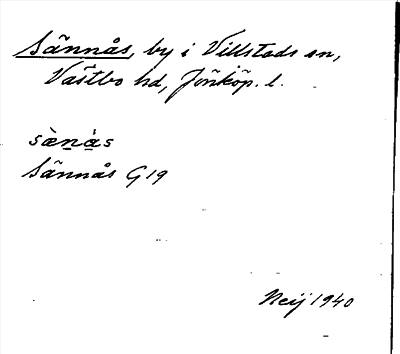 Sännås, by i Villstads sn,
Västbo hd, Jönköp. l.
sænås
Sännås G19
Neij 1940